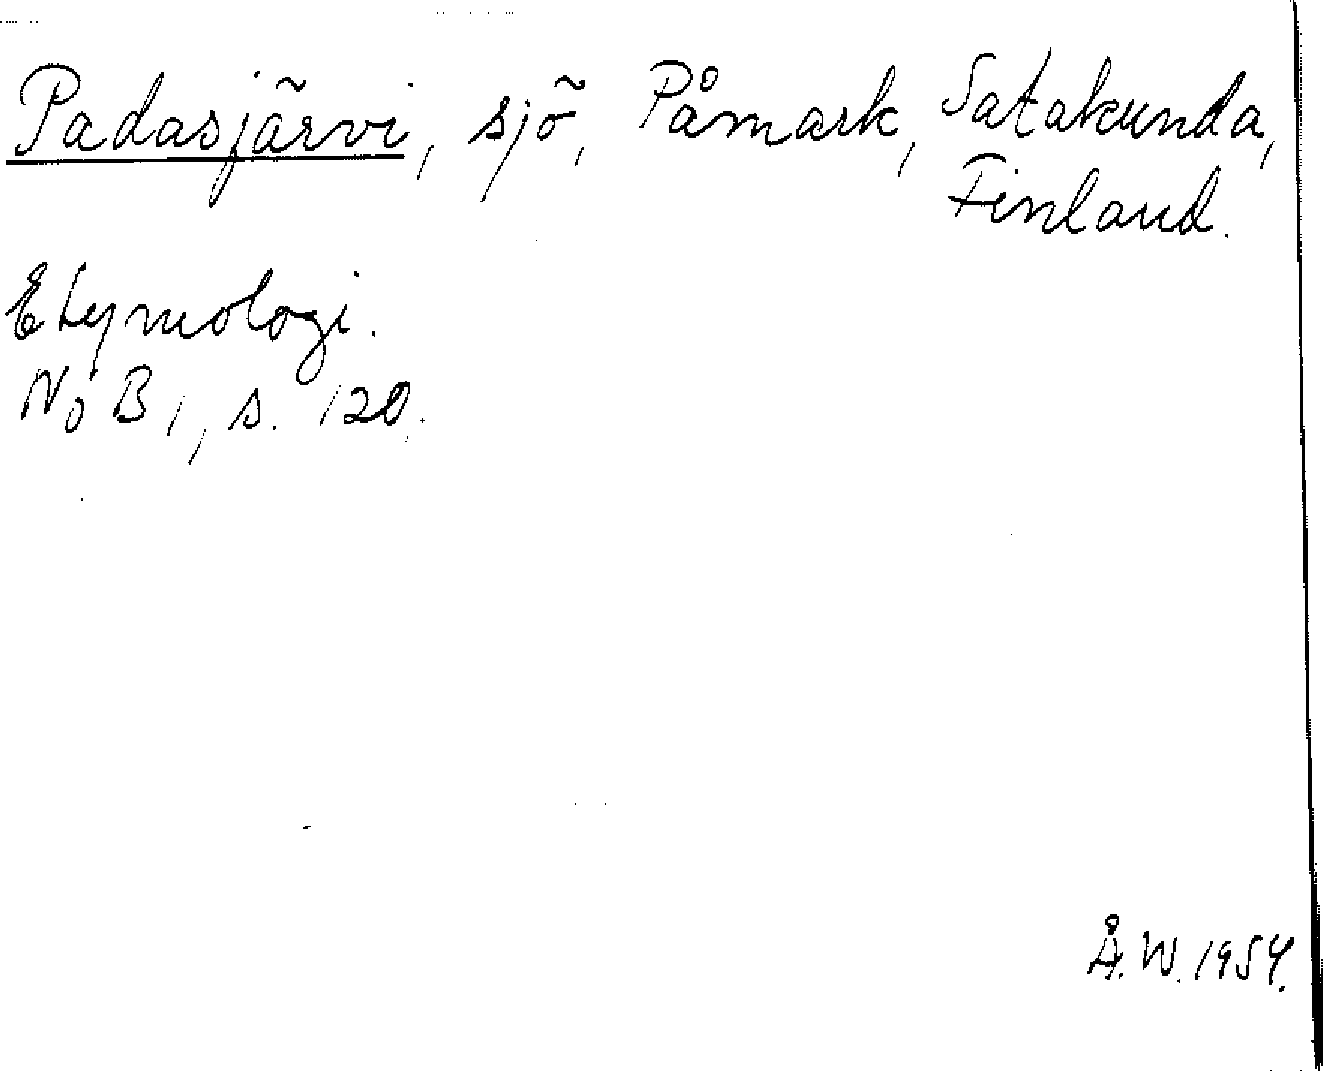 Padasjärvi, sjö, Påmark, Satakunda,
Finland.
Etymologi.
NoB 1, s. 120.
Å.W. 1954.